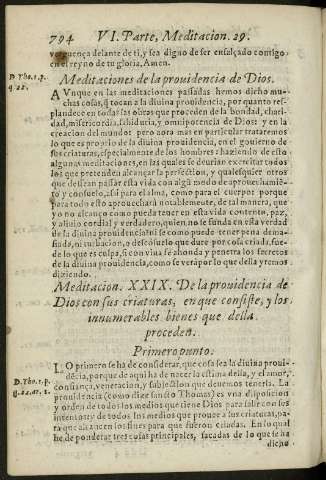 794 VI. Parte, Meditacion. 29.
verguença delante de ti, y sea digno de ser ensalçado contigo
en el reyno de tu gloria, Amen.
Meditaciones de la prouidencia de Dios.
D. Tho. 1. p.
q. 22.
AVnque en las meditaciones passadas hemos dicho mu-
chas cosas, q̃ tocan a la diuina prouidencia, por quanto res-
plandece en todas las obras que proceden de la bondad, chari-
dad, misericordia, sabiduria, y omnipotencia de Dios: y en la
creacion del mundo: pero aora mas en particular trataremos
lo que es proprio de la diuina prouidencia, en el gouierno de
sus criaturas, especialmente de los hombres: haziendo de esto
algunas meditaciones, en las quales se deurian exercitar todos
los que pretenden alcançar la perfection, y qualesquier otros
que dessean passar esta vida con algũ modo de aprouechamiẽ-
to y consuelo, assi para el alma, como para el cuerpo: porque
para todo esto aprouechará notablemente, de tal manera, que
yo no alcanço como pueda tener en esta vida contento, paz,
y aliuio cordial y verdadero, quien no se funda en esta verdad
de la diuina prouidencia: ni se como puede tener pena dema-
siada, ni turbacion, o desconsuelo que dure por cosa criada, fue-
ra de lo que es culpa, si con viua fe ahonda y penetra los secretos
de la diuina prouidencia, como se verà por lo que della yremos
diziendo.
Meditacion. XXIX. De la prouidencia de
Dios con sus criaturas, en que consiste, y los
innumerables bienes que della
proceden.
Primero punto.
D. Tho. 1. p.
q. 22. ar. 1.
LO primero se ha de considerar, que cosa sea la diuina proui-
dẽcia, porque de aqui ha de nacer la estima della, y el amor,
confiança, veneracion, y subjection que deuemos tenerla. La
prouidencia (como dize sancto Thomas) es vna disposicion
y orden de todos los medios que tiene Dios para salir con sus
intentos: y de todos los medios que prouee a sus criaturas, pa-
ra que alcancen los fines para que fueron criadas. En lo qual
he de ponderar tres cosas principales, sacadas de lo que se ha
dicho